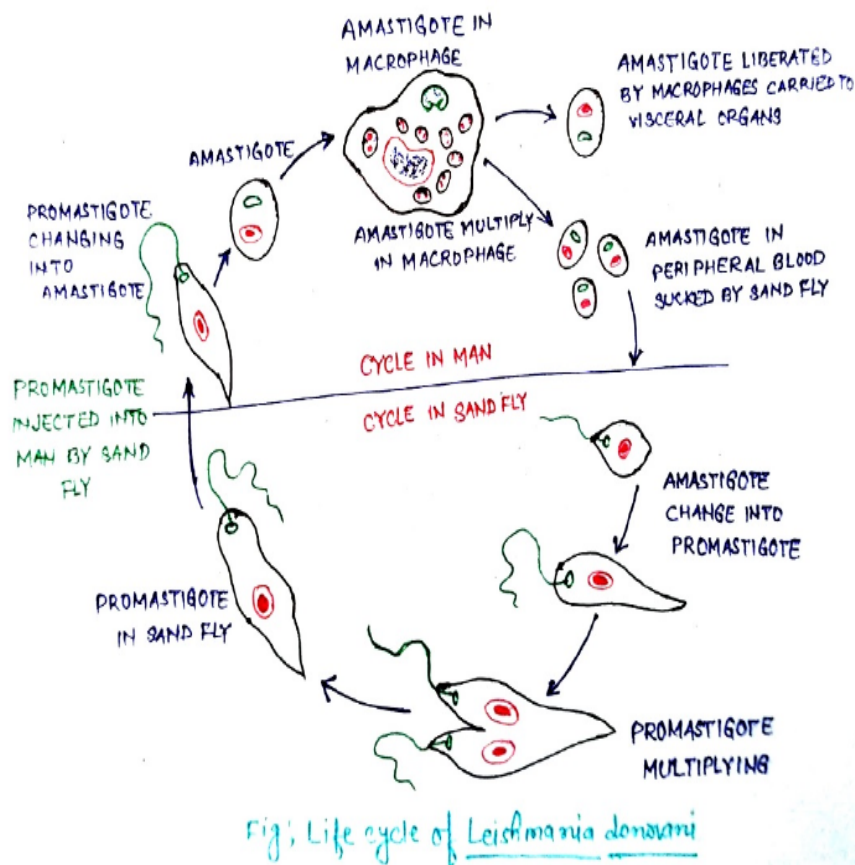 AMASTIGOTE IN
MACROPHAGE
AMASTIGOTE LIBERATED
BY MACROPHAGES CARRIED TO
VISCERAL ORGANS
AMASTIGOTE
PROMASTIGOTE
CHANGING
INTO
AMASTIGOTE
AMASTIGOTE MULTIPLY
IN MACROPHAGE
AMASTIGOTE IN
PERIPHERAL BLOOD
SUCKED BY SAND FLY
CYCLE IN MAN
CYCLE IN SAND FLY
PROMASTIGOTE
INJECTED INTO
MAN BY SAND
FLY
AMASTIGOTE
CHANGE INTO
PROMASTIGOTE
PROMASTIGOTE
IN SAND FLY
PROMASTIGOTE
MULTIPLYING
Fig; Life cycle of Leishmania donovani